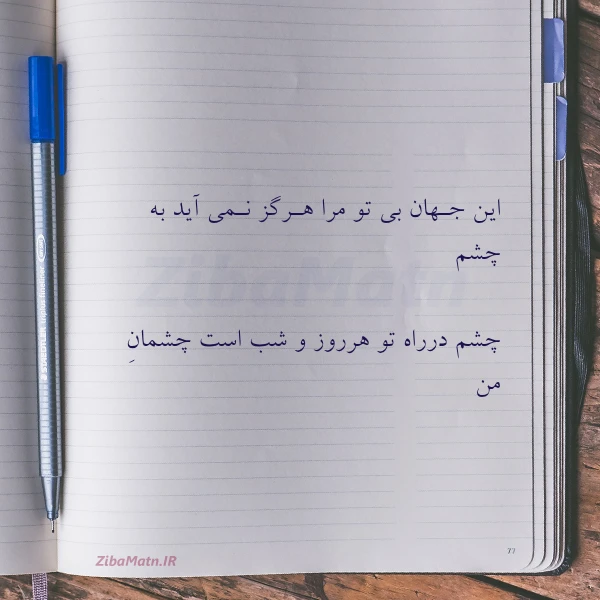 این جـهان بی تو مرا هـرگز نـمی آید به
چشم
چشم درراه تو هرروز و شب است چشمانِ
من
ZibaMatn
77
ZibaMatn.IR